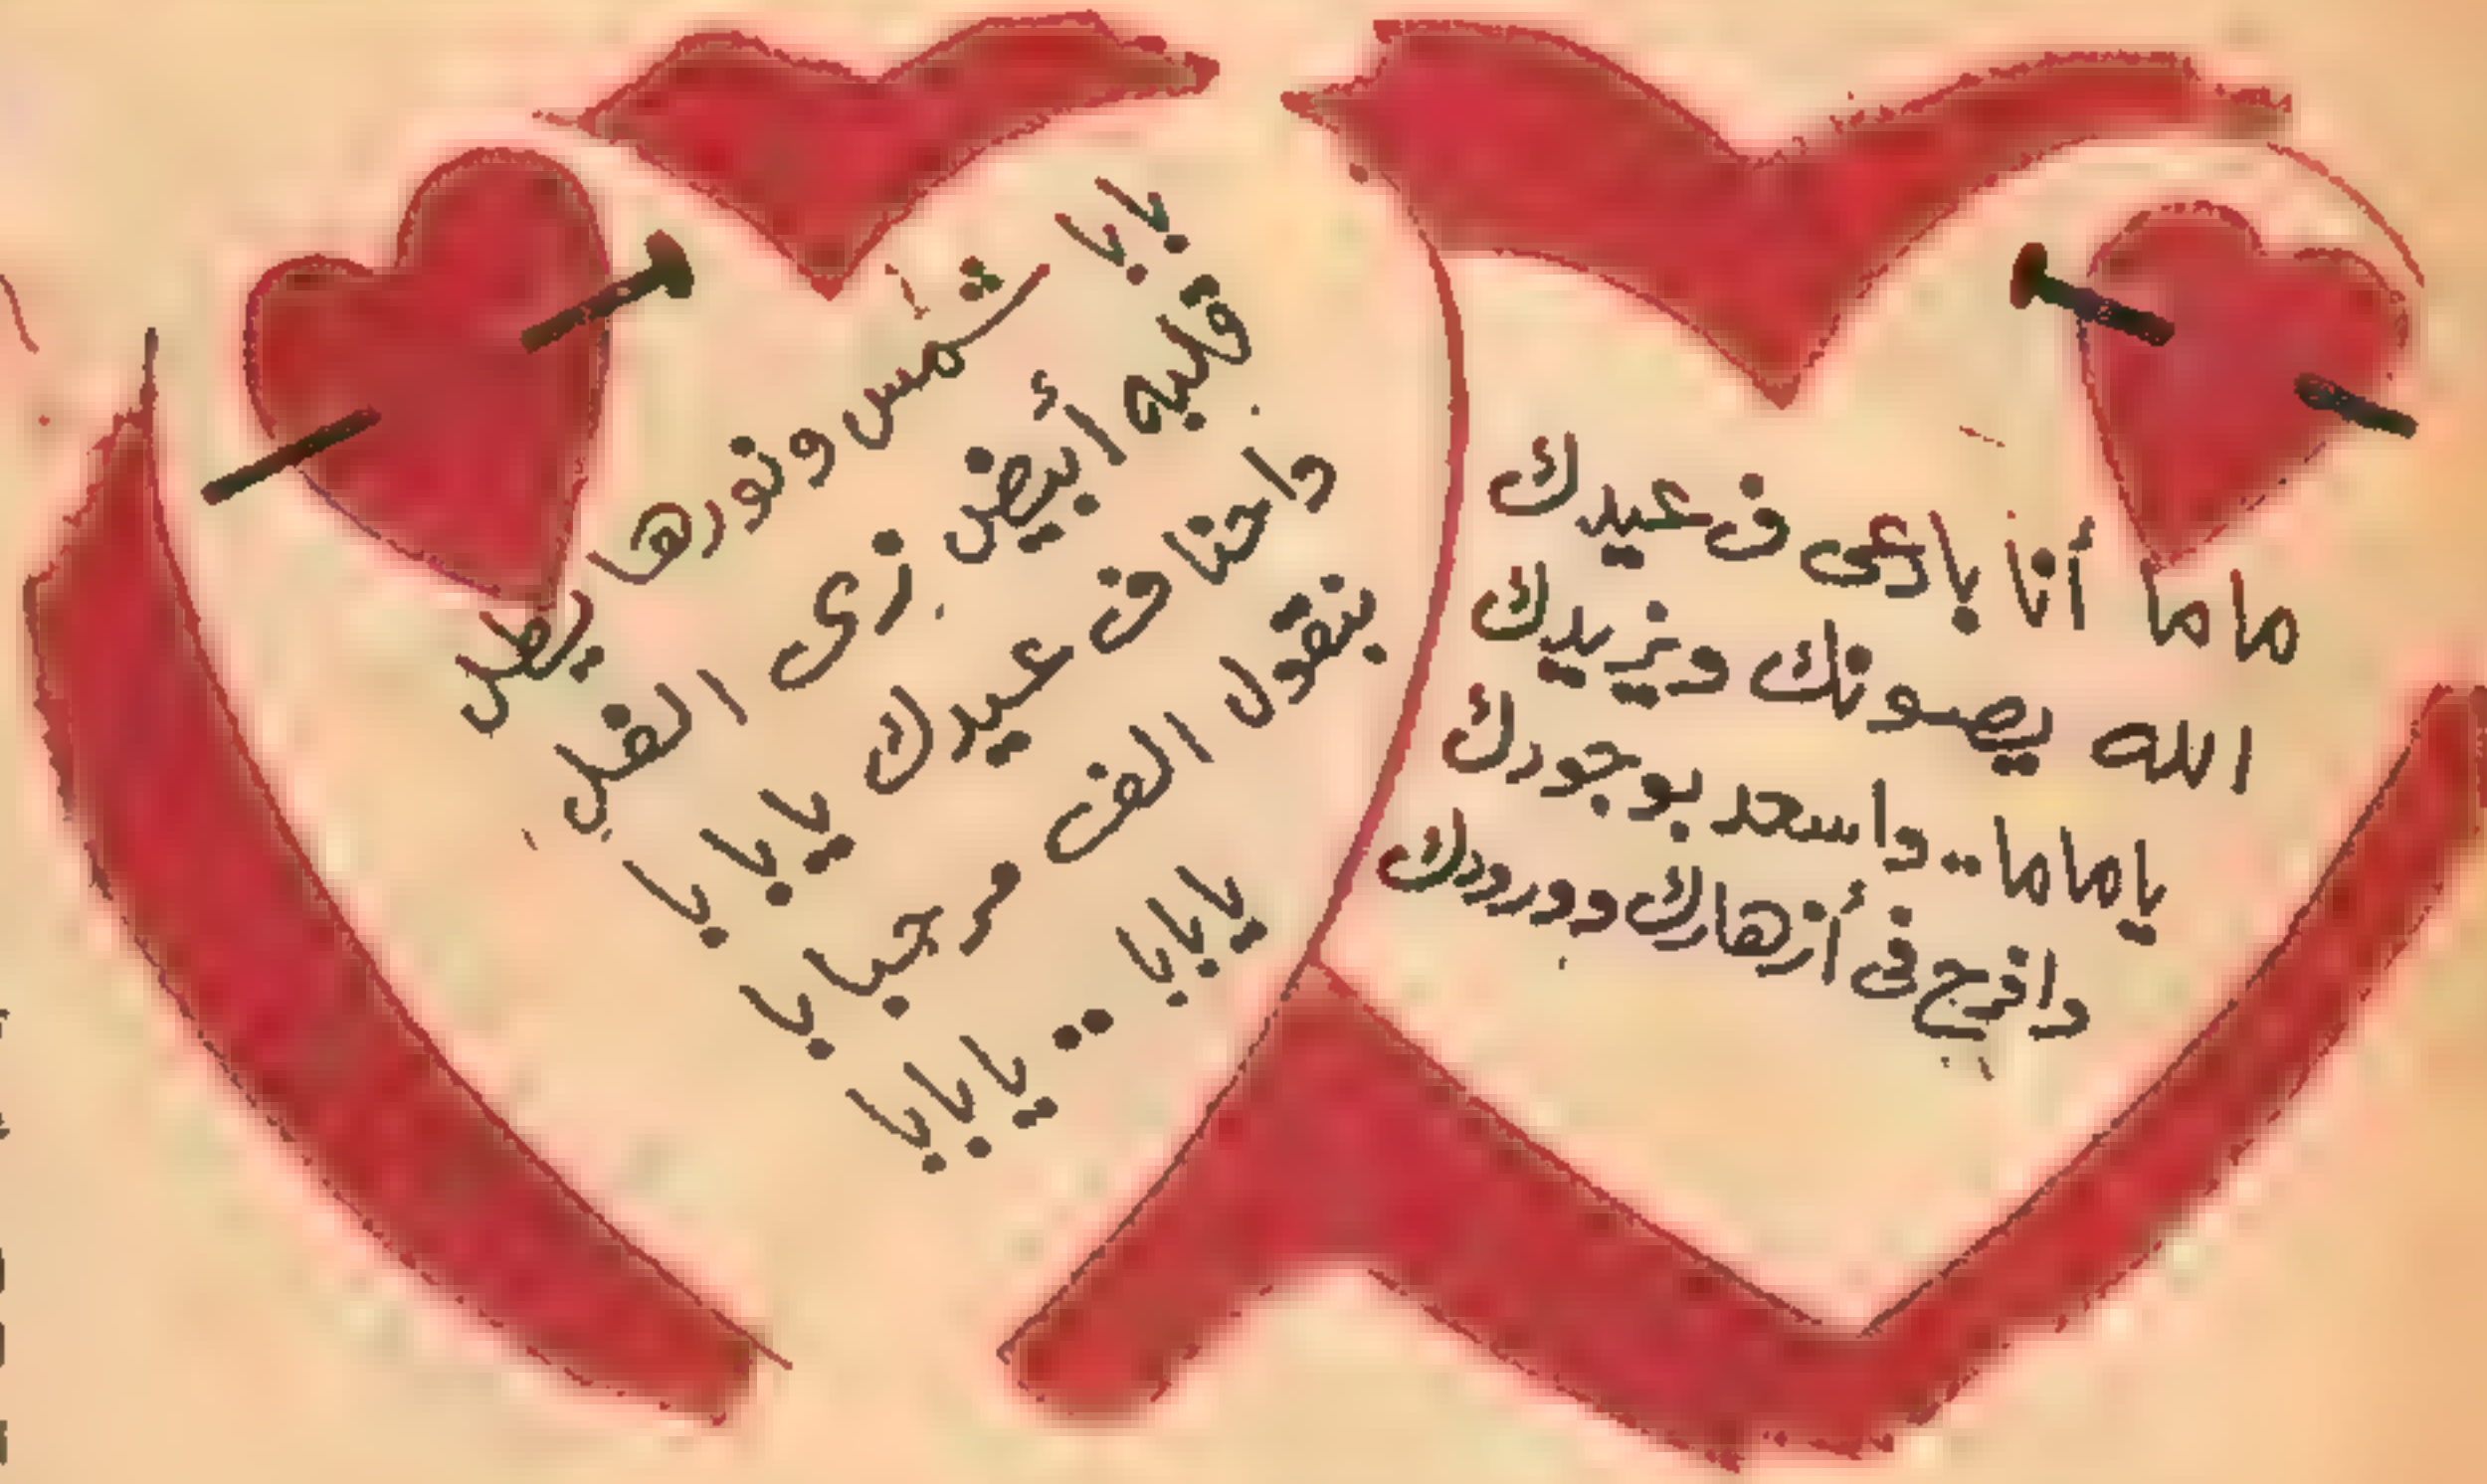 ماما أنا بادعى فى عيدك
الله يصونك ويزيدك
ياماما.. واسعد بوجودك
وافرح فى أزهارك وورودك
بابا شمس ونورها يطل
قلبه أبيض زى الفل
واحنا فى عيدك يابابا
بنقول الف مرحبا با
يابابا .. يابابا